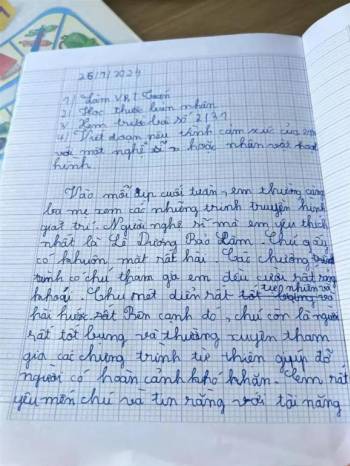 26/7/2024
1/ Làm VBT Toán
2/ Học thuộc bảng nhân
3/ Xem trước bài số 2/31
4/ Viết đoạn nêu tình cảm xúc của em
với một nghệ sĩ hoặc nhân vật hoạt
hình.
Vào mỗi dịp cuối tuần, em thường cùng
ba mẹ xem các những trình truyền hình
giải trí. Người nghệ sĩ mà em yêu thích
nhất là Lê Dương Bảo Lâm. Chú gầy
có khuôn mặt rất hài. Các chương trình
có chú tham gia em đều cười rất sảng
khoái. Chú Một diễn rất tự nhiên và
hài hước. Bên cạnh đó, chú còn là người
rất tốt bụng và thường xuyên tham
gia các chương trình từ thiện giúp đỡ
người có hoàn cảnh khó khăn. Em rất
yêu mến chú và tin rằng với tài năng